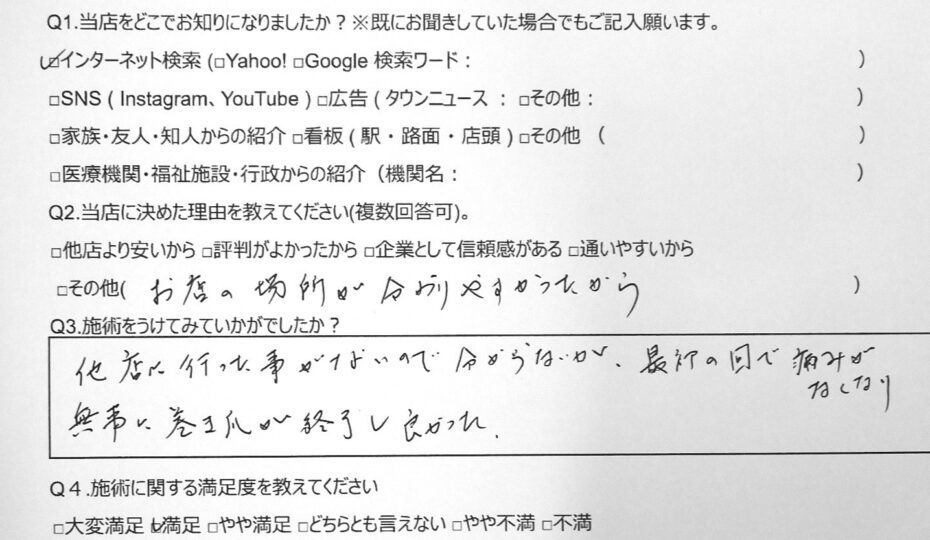 Q1.当店をどこでお知りになりましたか？※既にお聞きしていた場合でもご記入願います。
☑インターネット検索 (□Yahoo! □Google 検索ワード： )
□SNS ( Instagram、YouTube ) □広告 ( タウンニュース ： □その他： )
□家族・友人・知人からの紹介 □看板 ( 駅 ・ 路面 ・ 店頭 ) □その他 ( )
□医療機関・福祉施設・行政からの紹介 (機関名： )
Q2.当店に決めた理由を教えてください(複数回答可)。
□他店より安いから □評判がよかったから □企業として信頼感がある □通いやすいから
□その他( お店の場所が分かりやすかったから )
Q3.施術をうけてみていかがでしたか？
他店に行った事がないので分からないが、最初の回で痛みがなくなり
無事に巻き爪が終了し良かった。
Q４.施術に関する満足度を教えてください
□大変満足 ☑満足 □やや満足 □どちらとも言えない □やや不満 □不満